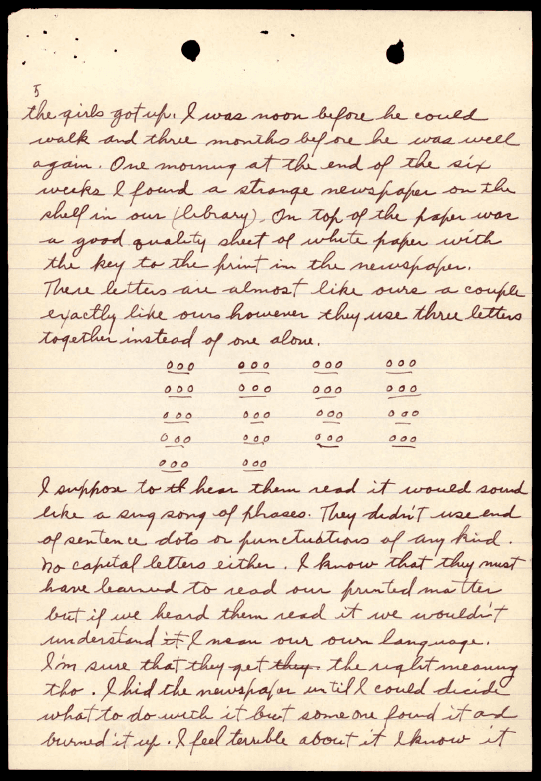 5
the girls got up. I was noon before he could
walk and three months before he was well
again. One morning at the end of the six
weeks I found a strange newspaper on the
shelf in our (library). On top of the paper was
a good quality sheet of white paper with
the key to the print in the newspaper.
There letters are almost like ours a couple
exactly like ours however they use three letters
together instead of one alone.
ooo ooo ooo ooo
ooo ooo ooo ooo
ooo ooo ooo ooo
ooo ooo ooo ooo
ooo ooo
I suppose to it hear them read it would sound
like a sing song of phrases. They didn't use end
of sentence dots or punctuations of any kind.
No capital letters either. I know that they must
have learned to read our printed matter
but if we heard them read it we wouldn't
understand it I mean our own language.
I'm sure that they get they. the right meaning
tho. I hid the newspaper until I could decide
what to do with it but someone found it and
burned it up. I feel terrible about it I know it